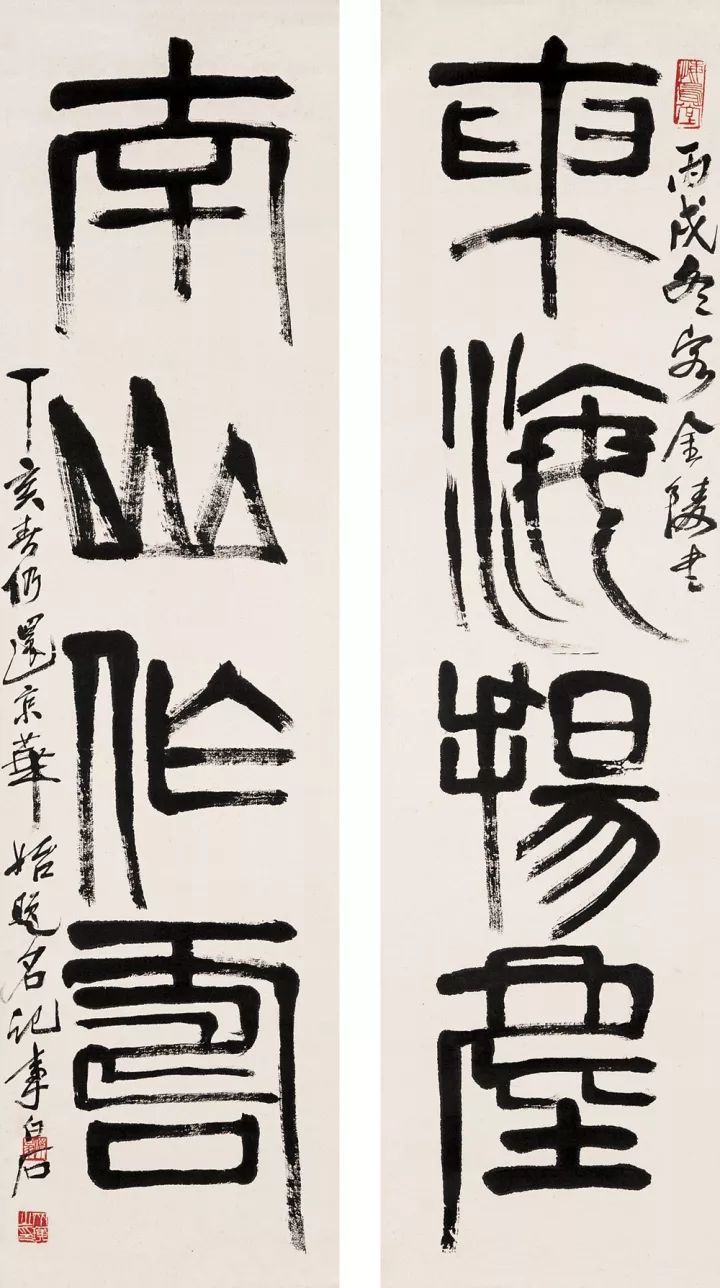 悔烏堂
丙戌冬客金陵書
東海揚塵
南山作壽
丁亥春仍還京華始題名記事白石